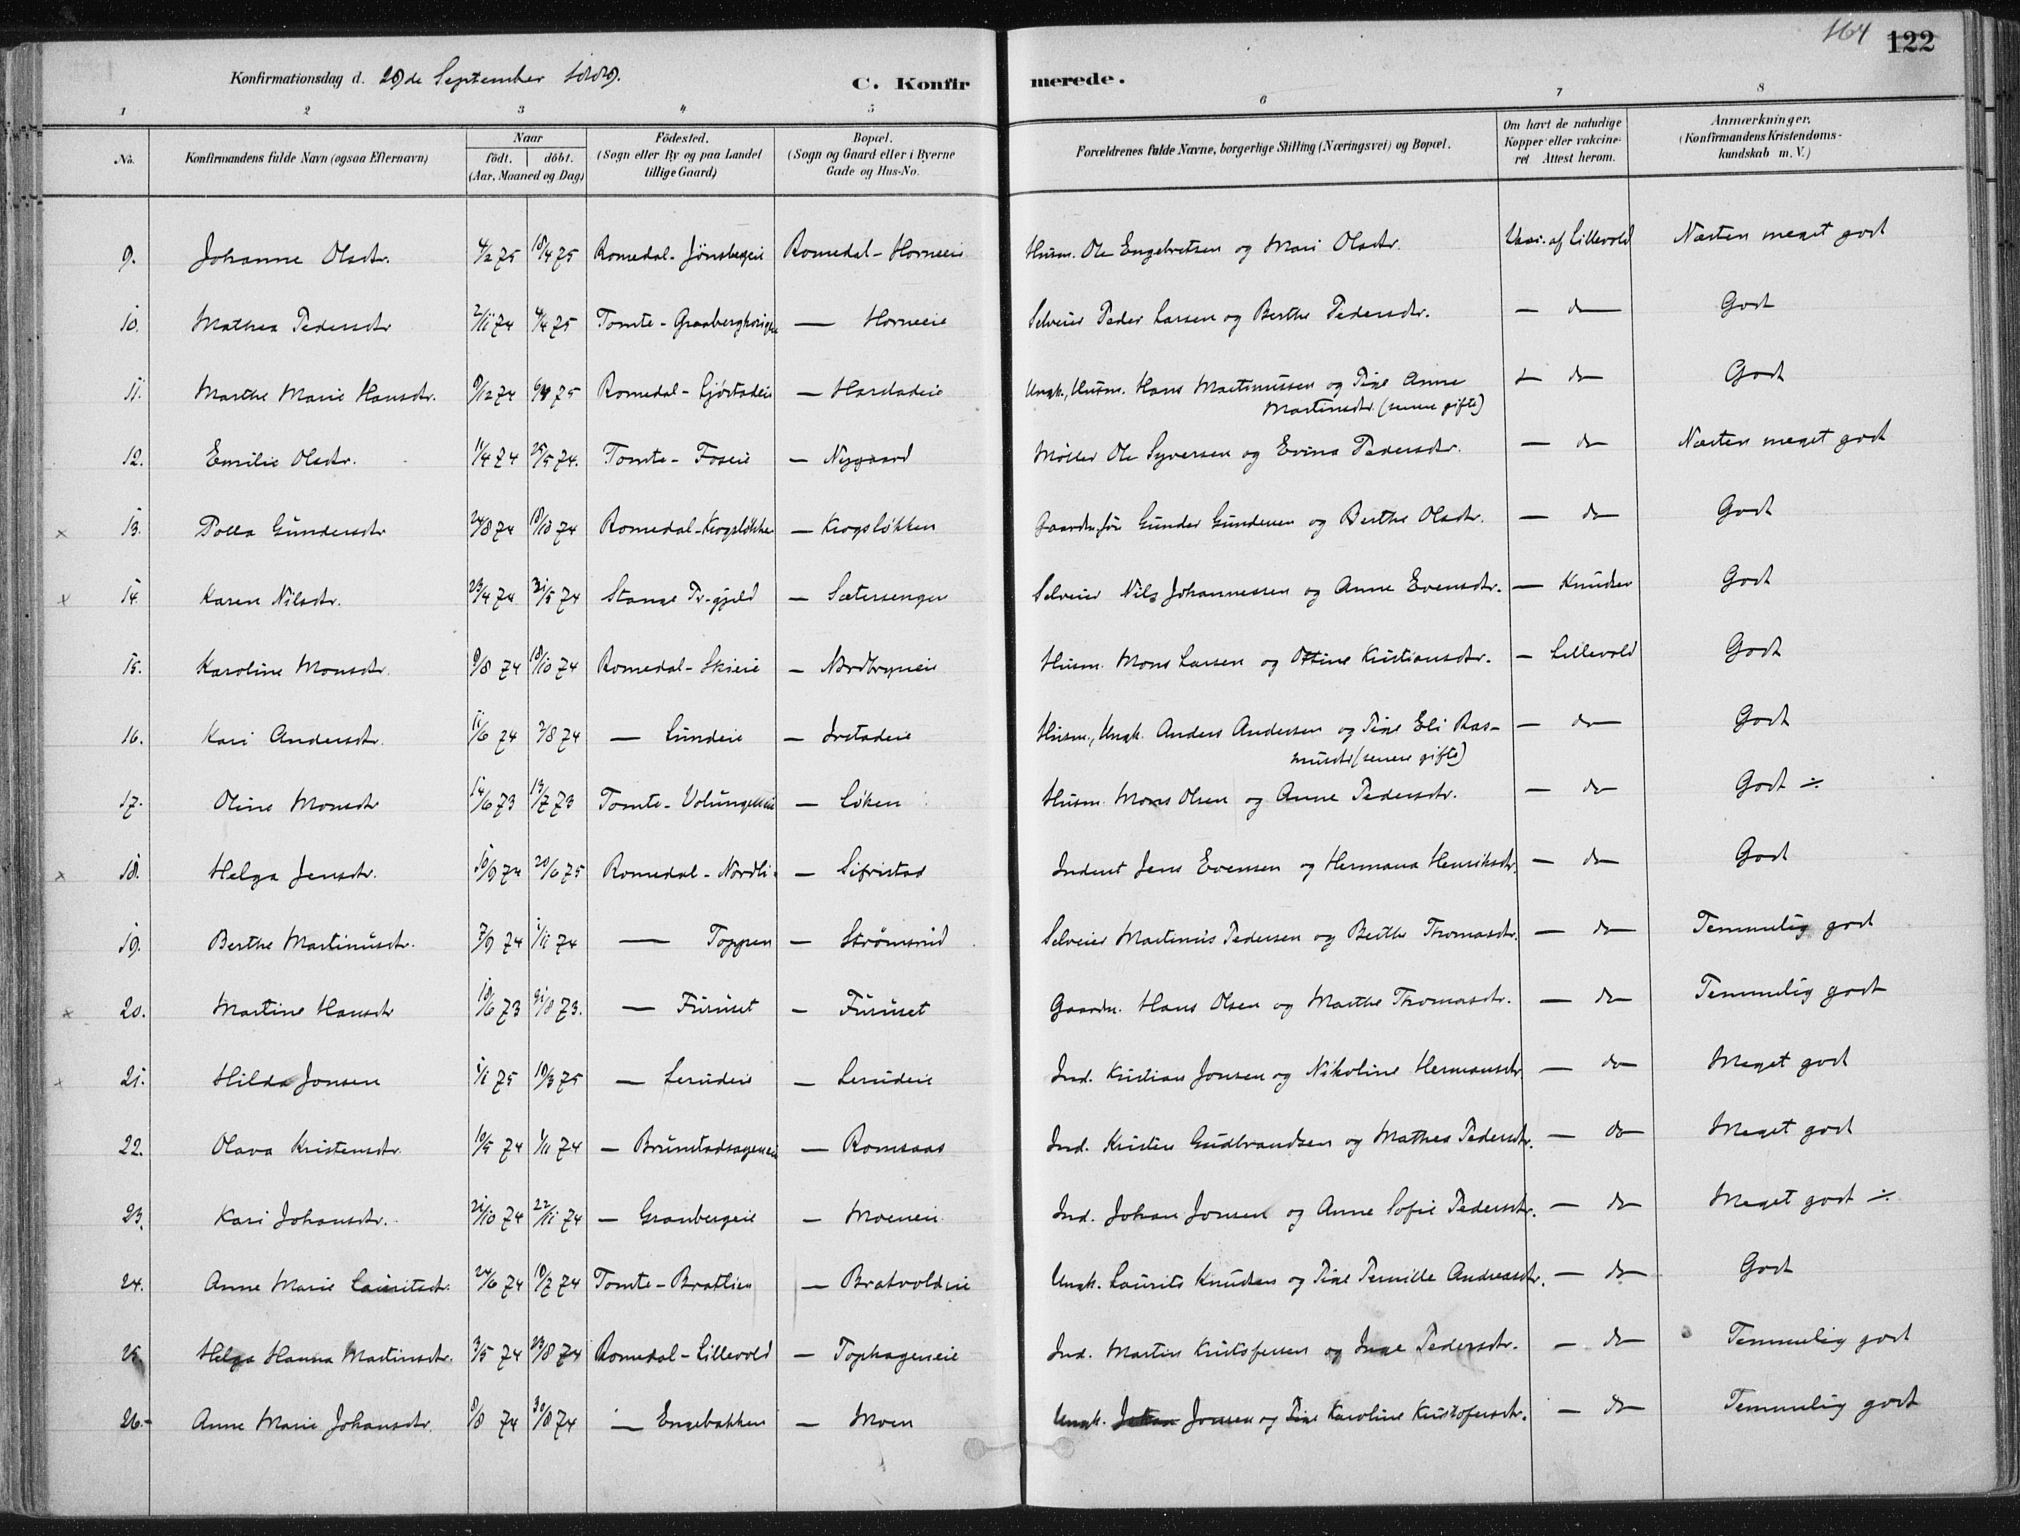 164 122
Konfirmationsdag d. 29de September 1889. C. Konfir merede.
1 2 3 4 5 6 7 8
No. Konfirmandens fulde Navn (ogsaa Efternavn) Naar født. døbt. (Aar, Maaned og Dag) Fødested. (Sogn eller By og paa Landet tillige Gaard) Bopæl. (Sogn og Gaard eller i Byerne Gade og Hus-No. Forældrenes fulde Navne, borgerlige Stilling (Næringsvei) og Bopæl. Om havt de naturlige Kopper eller vakcineret Attest herom. Anmærkninger. (Konfirmandens Kristendomskundskab m. V.)
9. Johanne Olsdtr. 4/2 75 18/4 75 Romedal - Jønsbergeie Romedal - Horneeie Husm. Ole Engebretsen og Mari Olsdtr. Vacc. af Lillevold Næsten meget godt
10. Mathea Pedersdtr 2/11 74 4/4 75 Tomte - — Horneeie Selveier Peder Larsen og Berthe Pedersdtr. — do Godt
11. Marthe Marie Hansdtr. 9/12 74 75 Romedal - Gjørstadeie — Harstadeie Ungk., Husm. Hans Martinussen og Pige Anne
Martinsdtr. (senere gifte) — do Godt
12. Emilie Olsdtr. 11/4 74 25/5 74. Tomte - Foseie — Nygaard Møller Ole Syversen og Evina Pedersdtr. — do Næsten meget godt
x 13. Polla Gundersdtr 24/8 74 18/10 74 Romedal - Krogsløkken — Krogsløkken Gunder Gundersen og Berthe Olsdtr. — do Godt
x 14. Karen Nilsdtr. 23/4 74 31/5 74 Stange Pr-gjeld — Sætersengen Selveier Nils Johannessen og Anne Evensdtr. — Knudsen Godt
15. Karoline Monsdtr. 9/8 74 18/10 74 Romedal - Skieie — Nordbryneie Husm. Mons Larsen og Ottine Kristiansdtr. — Lillevold Godt
16. Kari Andersdtr. 11/6 74 2/8 74 — Lundeie — Ivstadeie Husm., Ungk. Anders Andersen og Pige Eli Ras-
musdtr (senere gifte) — do Godt
17. Oline Monsdtr 14/6 73 13/7 73 Tomte - — Løken Husm. Mons Olsen og Anne Pedersdtr. — do Godt ÷
x 18. Helga Jensdtr. 10/9 74 20/6 75 Romedal - Nordli — Sifristad Inderst Jens Evensen og Hermana Henriksdtr. — do Godt
19. Berthe Martinusdtr. 7/9 74 1/11 74 — Toppen — Strømsrud Selveier Martinus Pedersen og Berthe Thomasdtr. — do Temmelig godt
x 20. Martine Hansdtr 18/6 73 31/8 73. — Furuset — Furuset Gaardm. Hans Olsen og Marthe Thomasdtr. — do Temmelig godt
x 21. Hilda Jonsen 1/1 75 19/3 75 — Lerudeie — Lerudeie Ind. Kristian Jonsen og Nikoline Hermansdtr — do Meget godt
22. Olava Kristensdtr. 10/5 74 1/11 74 — Brunstadhageneie — Romsaas Ind. Kristen Gudbrandsen og Mathea Pedersdtr. — do Meget godt
23. Kari Johansdtr. 21/10 74 22/11 74 — Graabergeie — Moeneie Ind. Johan Jonsen og Anne Sofie Pedersdtr. — do Meget godt ÷
24. Anne Marie Lauritsdtr. 24/6 74 19/7 74 Tomte - Bratlien — Bratvoldeie Ungk. Laurits Knudsen og Pige Pernille Andreasdtr. — do Godt
25. Helga Hanna Martinsdtr. 3/5 74 23/8 74 Romedal - Lillevold — Tophageneie Ind. Martin Kristofersen og Inge Pedersdtr. — do Temmelig godt
26. Anne Marie Johansdtr. 8/8 74 30/8 74 — Engebakken — Moen Ungk. Johan Jonsen og Pige Karoline Kristofersdtr. — do Temmelig godt